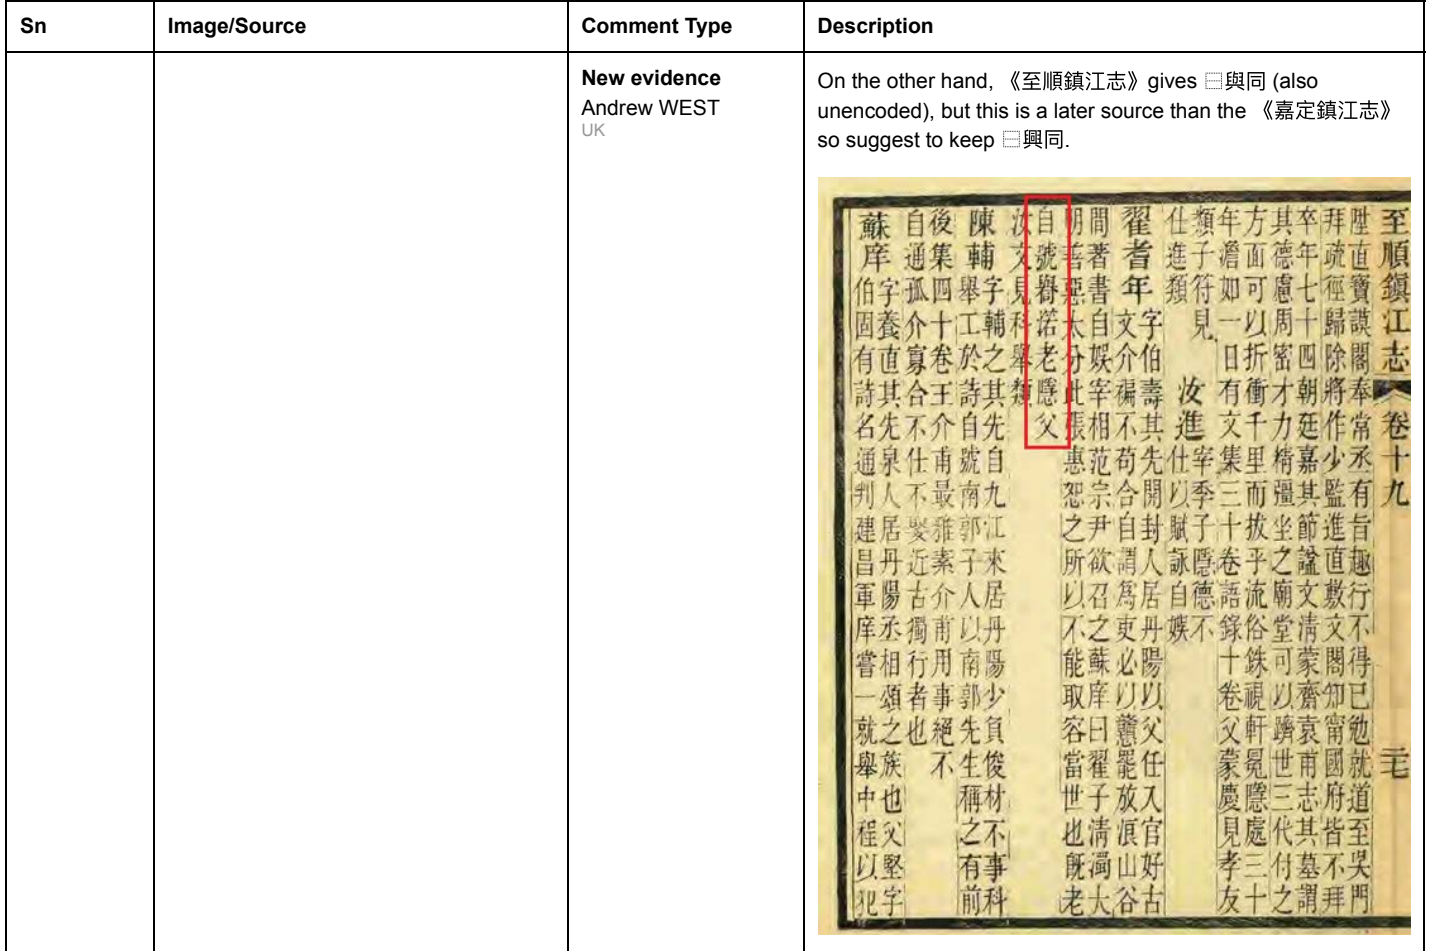 Sn Image/Source Comment Type Description
New evidence
Andrew WEST
UK
On the other hand, 《至順鎮江志》gives ⿱與同 (also
unencoded), but this is a later source than the 《嘉定鎮江志》
so suggest to keep ⿱興同.
至順鎮江志 卷十九
陞直寶謨閣奉常丞有旨趣行不得已勉就道至吳門
拜疏徑歸除將作少監進直敷文閣知甯國府皆不拜
卒年七十四朝廷嘉其節諡文清蒙齋袁甫志其墓謂
其德慮周密才力精彊坐之廟堂可以躋世三代付之
方面可以折衝千里而拔乎流俗銖視軒冕隱處三十
年澹如一日有文集三十卷語錄十卷父蒙慶見孝友
類子符見
仕進類
汝進
宰季子隱德不
仕以賦詠自娛
翟耆年
字伯壽其先開封人居丹陽以父任入官好古
文介褊不苟合自謂爲吏必以戇罷放浪山谷
間著書自娛宰相范宗尹欲召之蘇庠曰翟子清濁大
明善惡太分此張惠恕之所以不能取容當世也旣老
自號⿱與同老隱父
汝文見科舉類
陳輔
字輔之其先自九江來居丹陽少負俊材不事科
舉工於詩自號南郭子人以南郭先生稱之有前
後集四十卷王介甫最雅素介甫用事絕不
自通孤介寡合不仕不娶近古獨行者也
蘇庠
字養直其先泉人居丹陽丞相頌之族也父堅字
伯固有詩名通判建昌軍庠嘗一就舉中程以犯